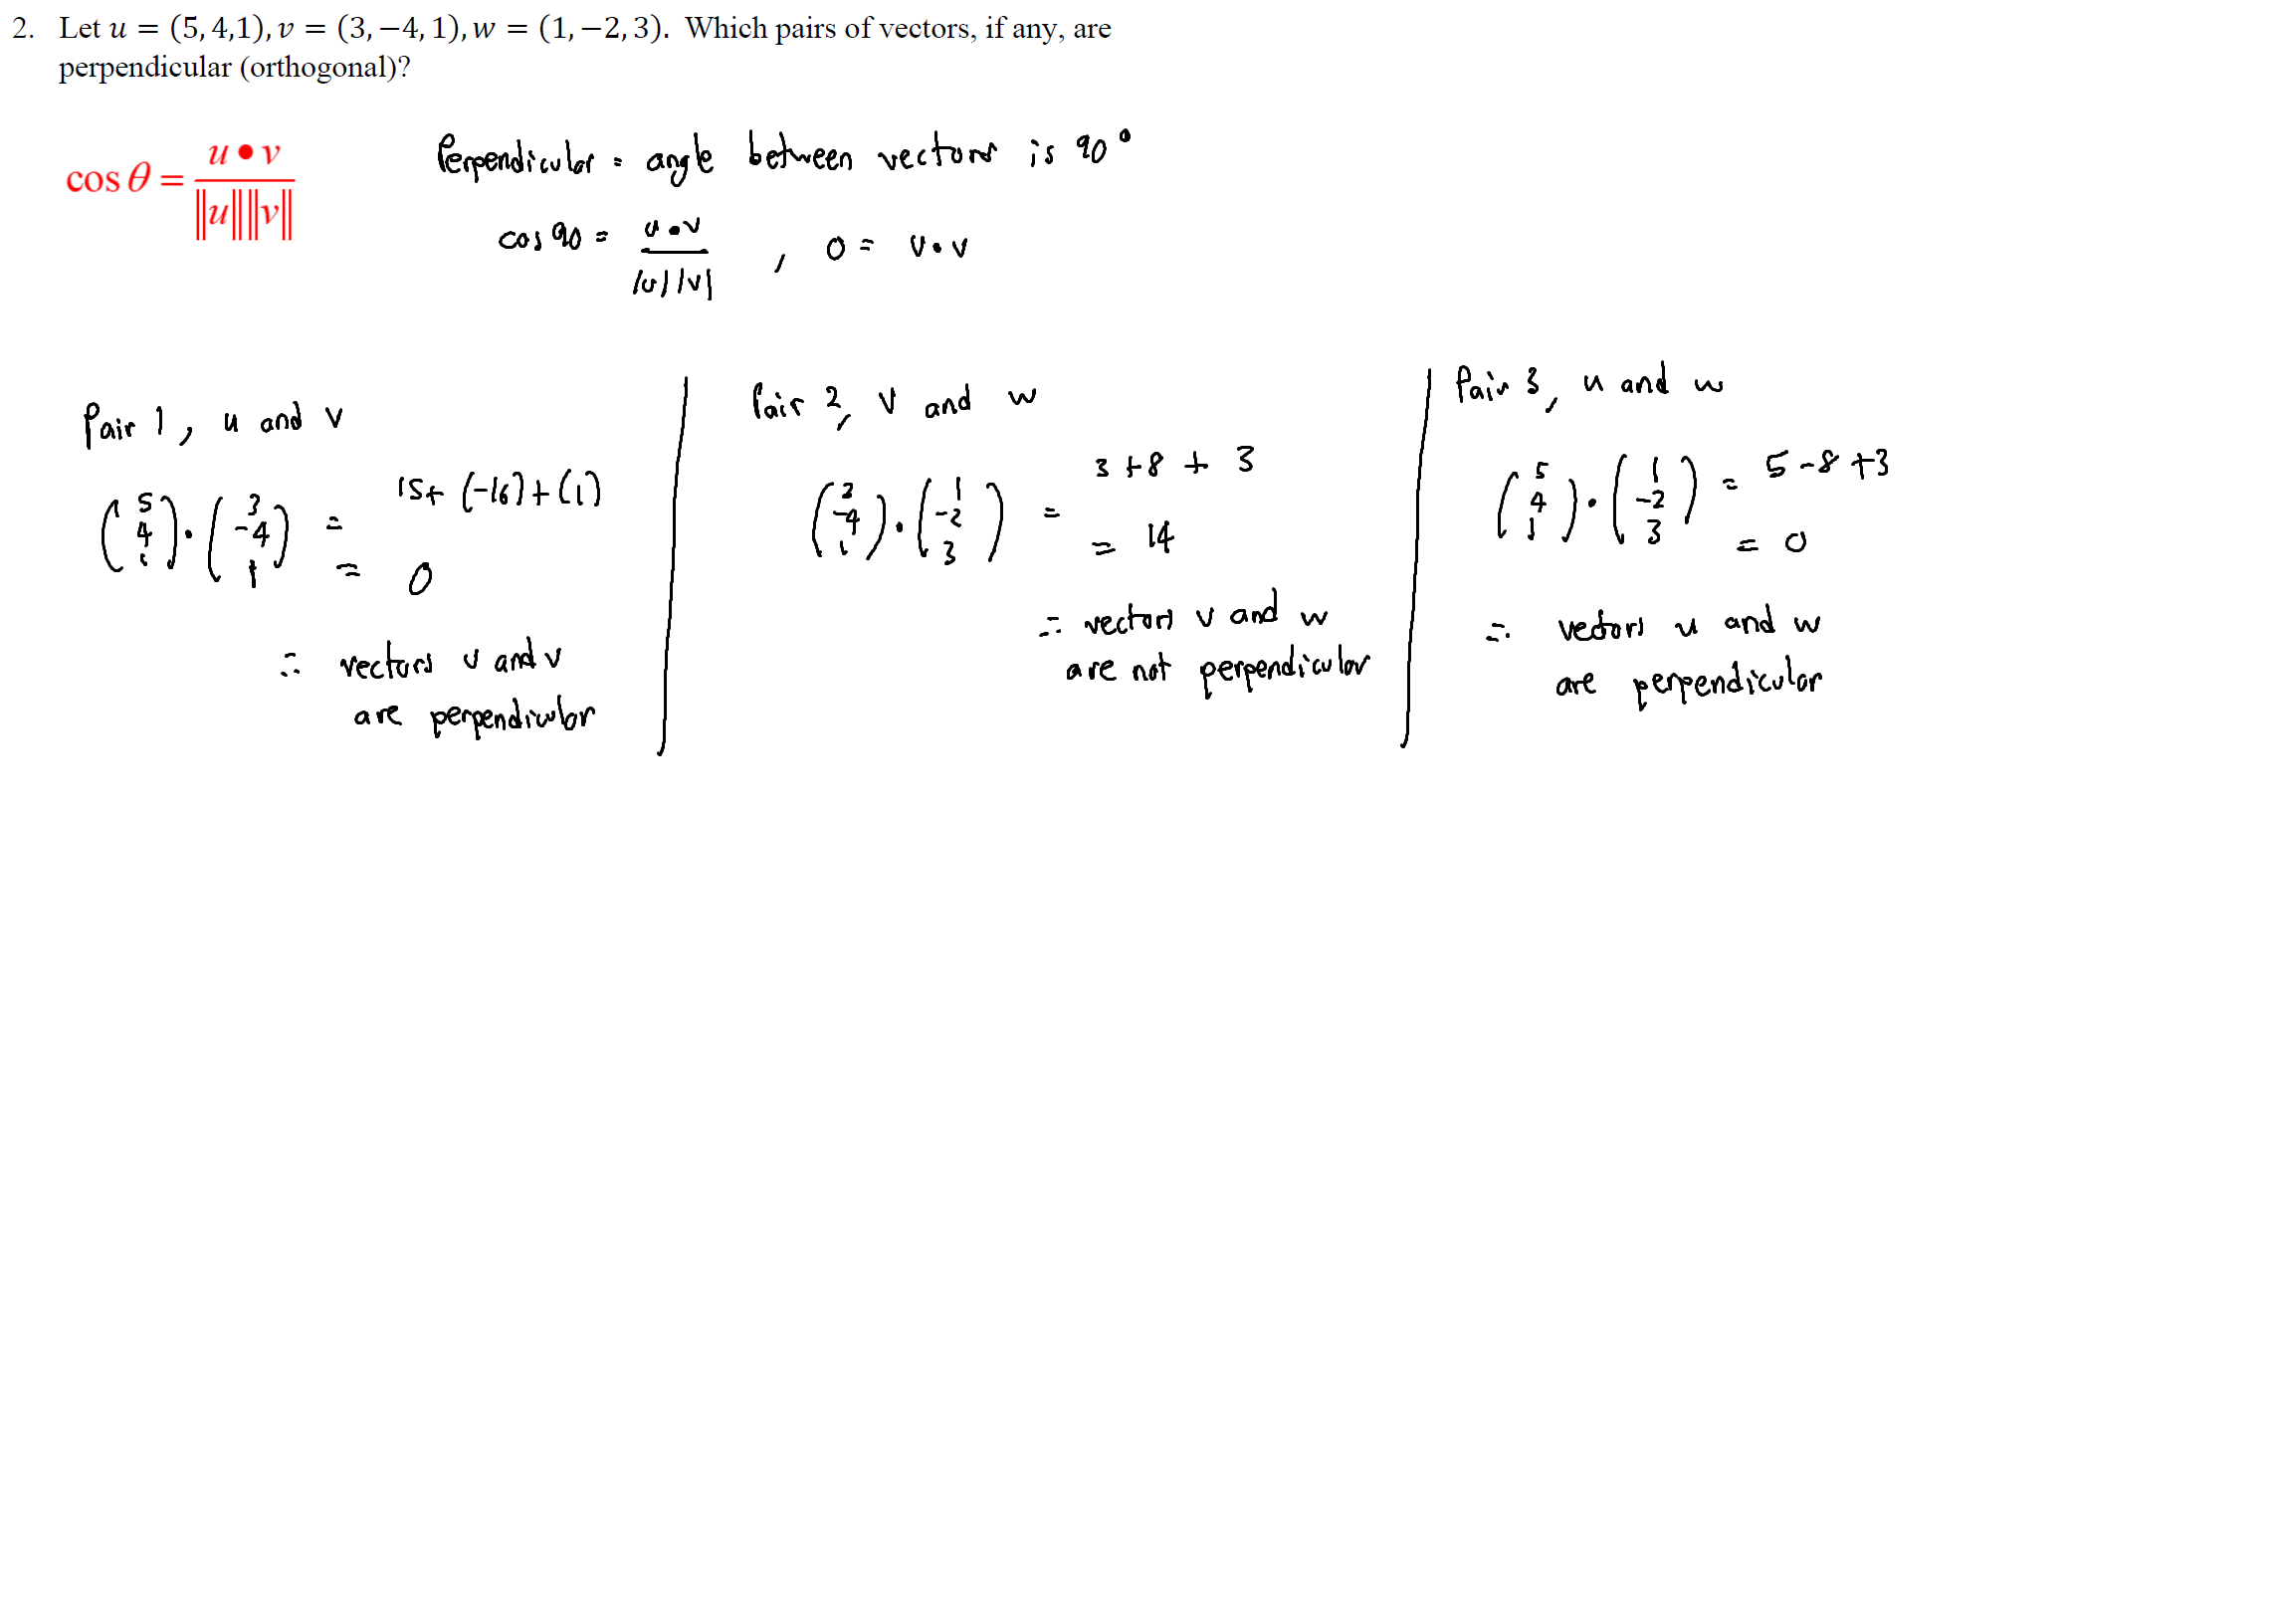 2. Let u = (5, 4,1), v = (3, −4, 1), w = (1, −2, 3). Which pairs of vectors, if any, are
perpendicular (orthogonal)?
cos θ = u • v / ‖u‖‖v‖
Perpendicular = angle between vectors is 90°
cos 90 = u • v / |u| |v| , 0 = u • v
Pair 1, u and v
(5 4 1) · (3 -4 1) = 15 + (-16) + (1)
= 0
∴ vectors u and v
are perpendicular
Pair 2, v and w
(3 -4 1) · (1 -2 3) = 3 + 8 + 3
= 14
∴ vectors v and w
are not perpendicular
Pair 3, u and w
(5 4 1) · (1 -2 3) = 5 - 8 + 3
= 0
∴ vectors u and w
are perpendicular